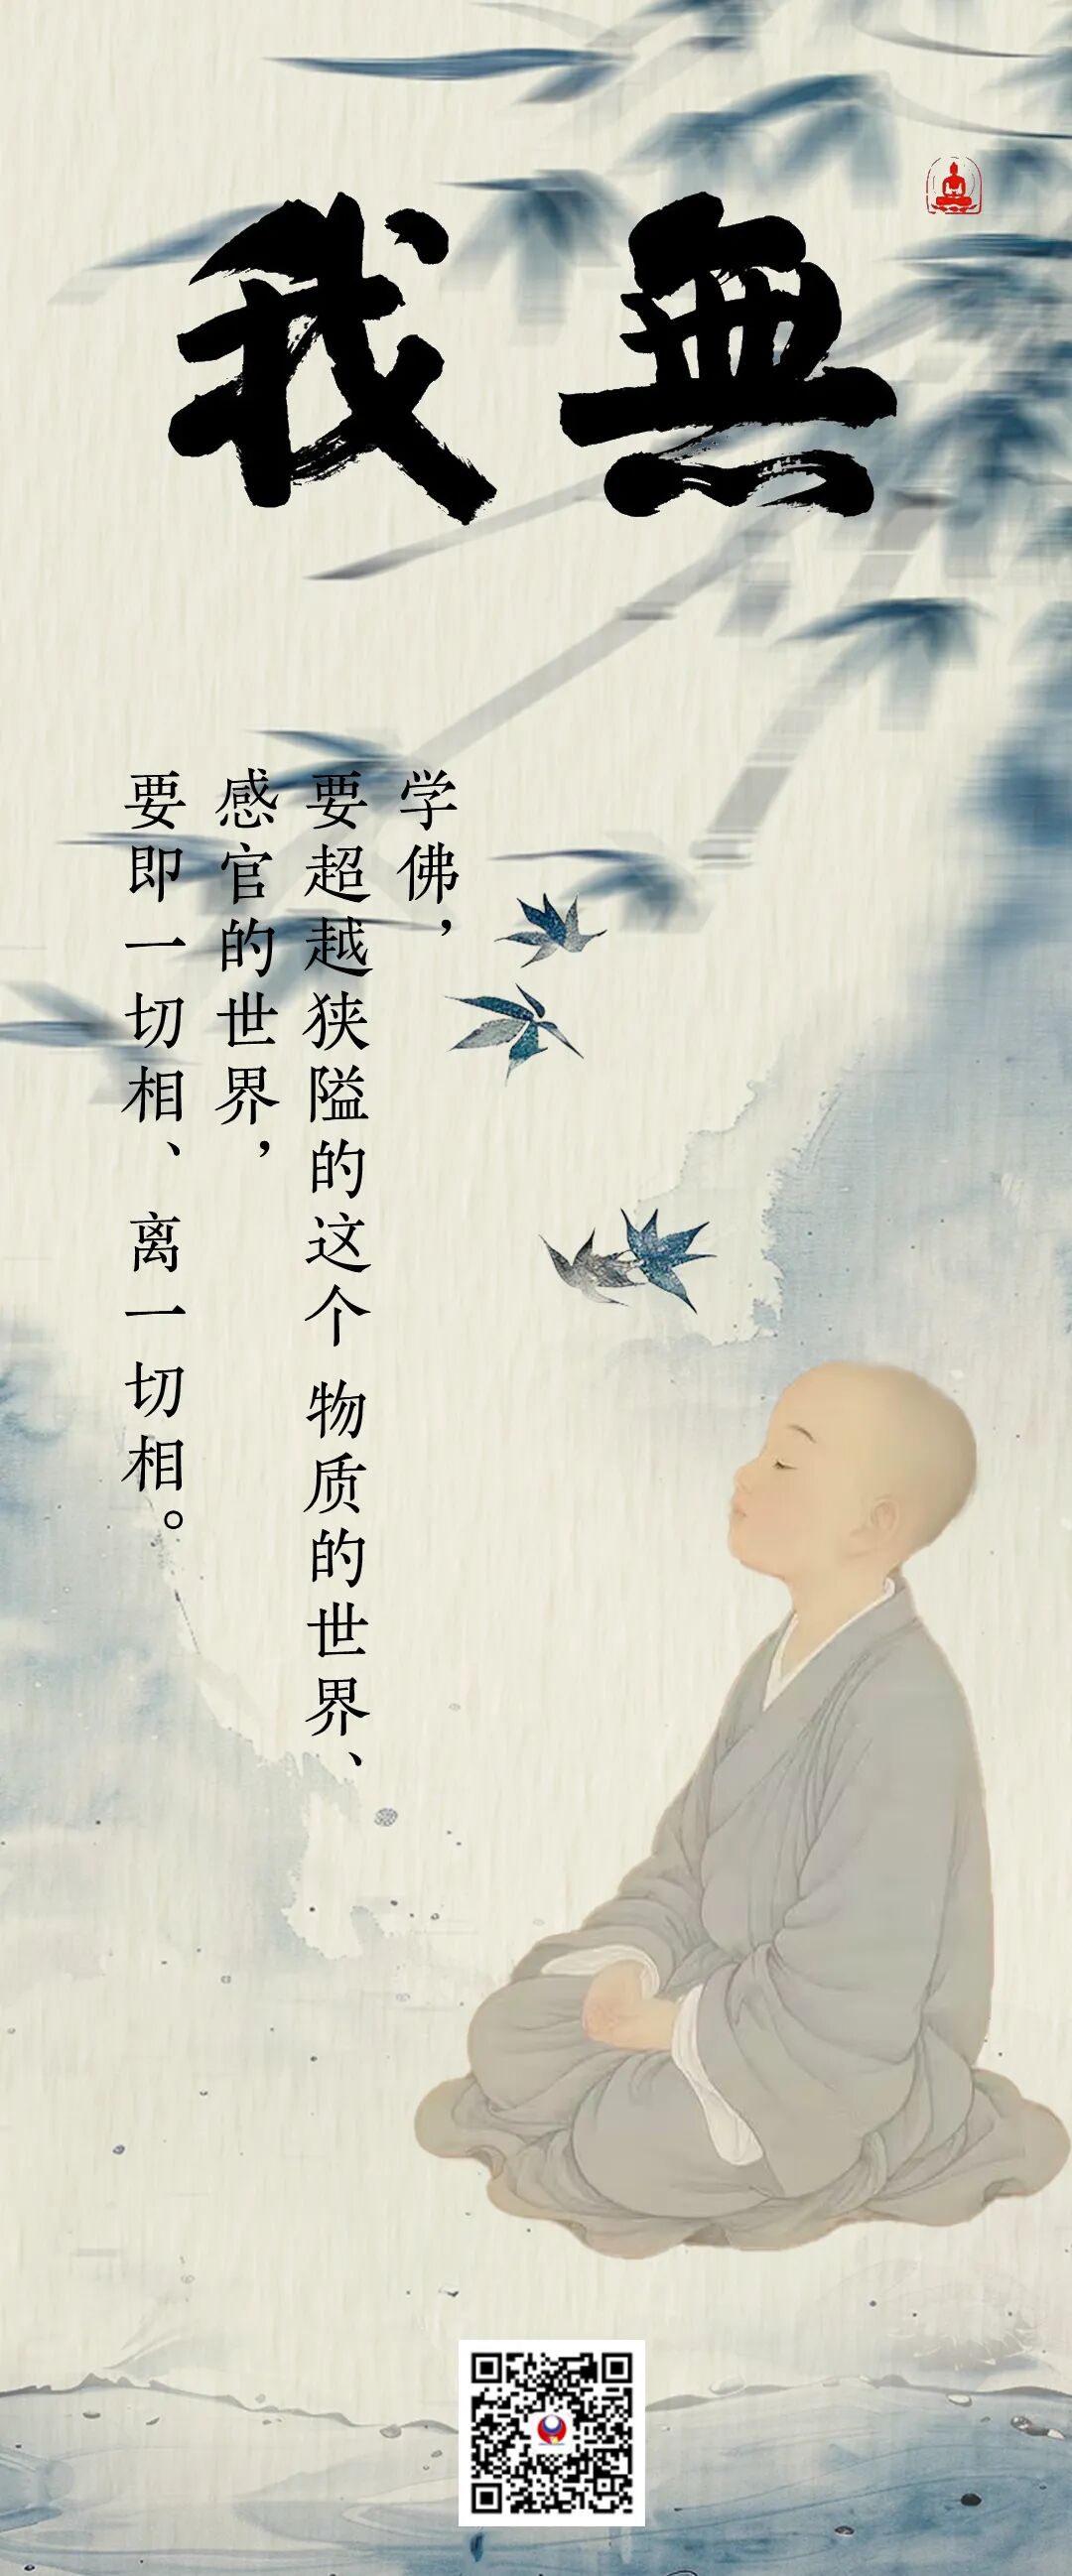 無我
学佛，
要超越狭隘的这个 物质的世界、
感官的世界，
要即一切相、离一切相。